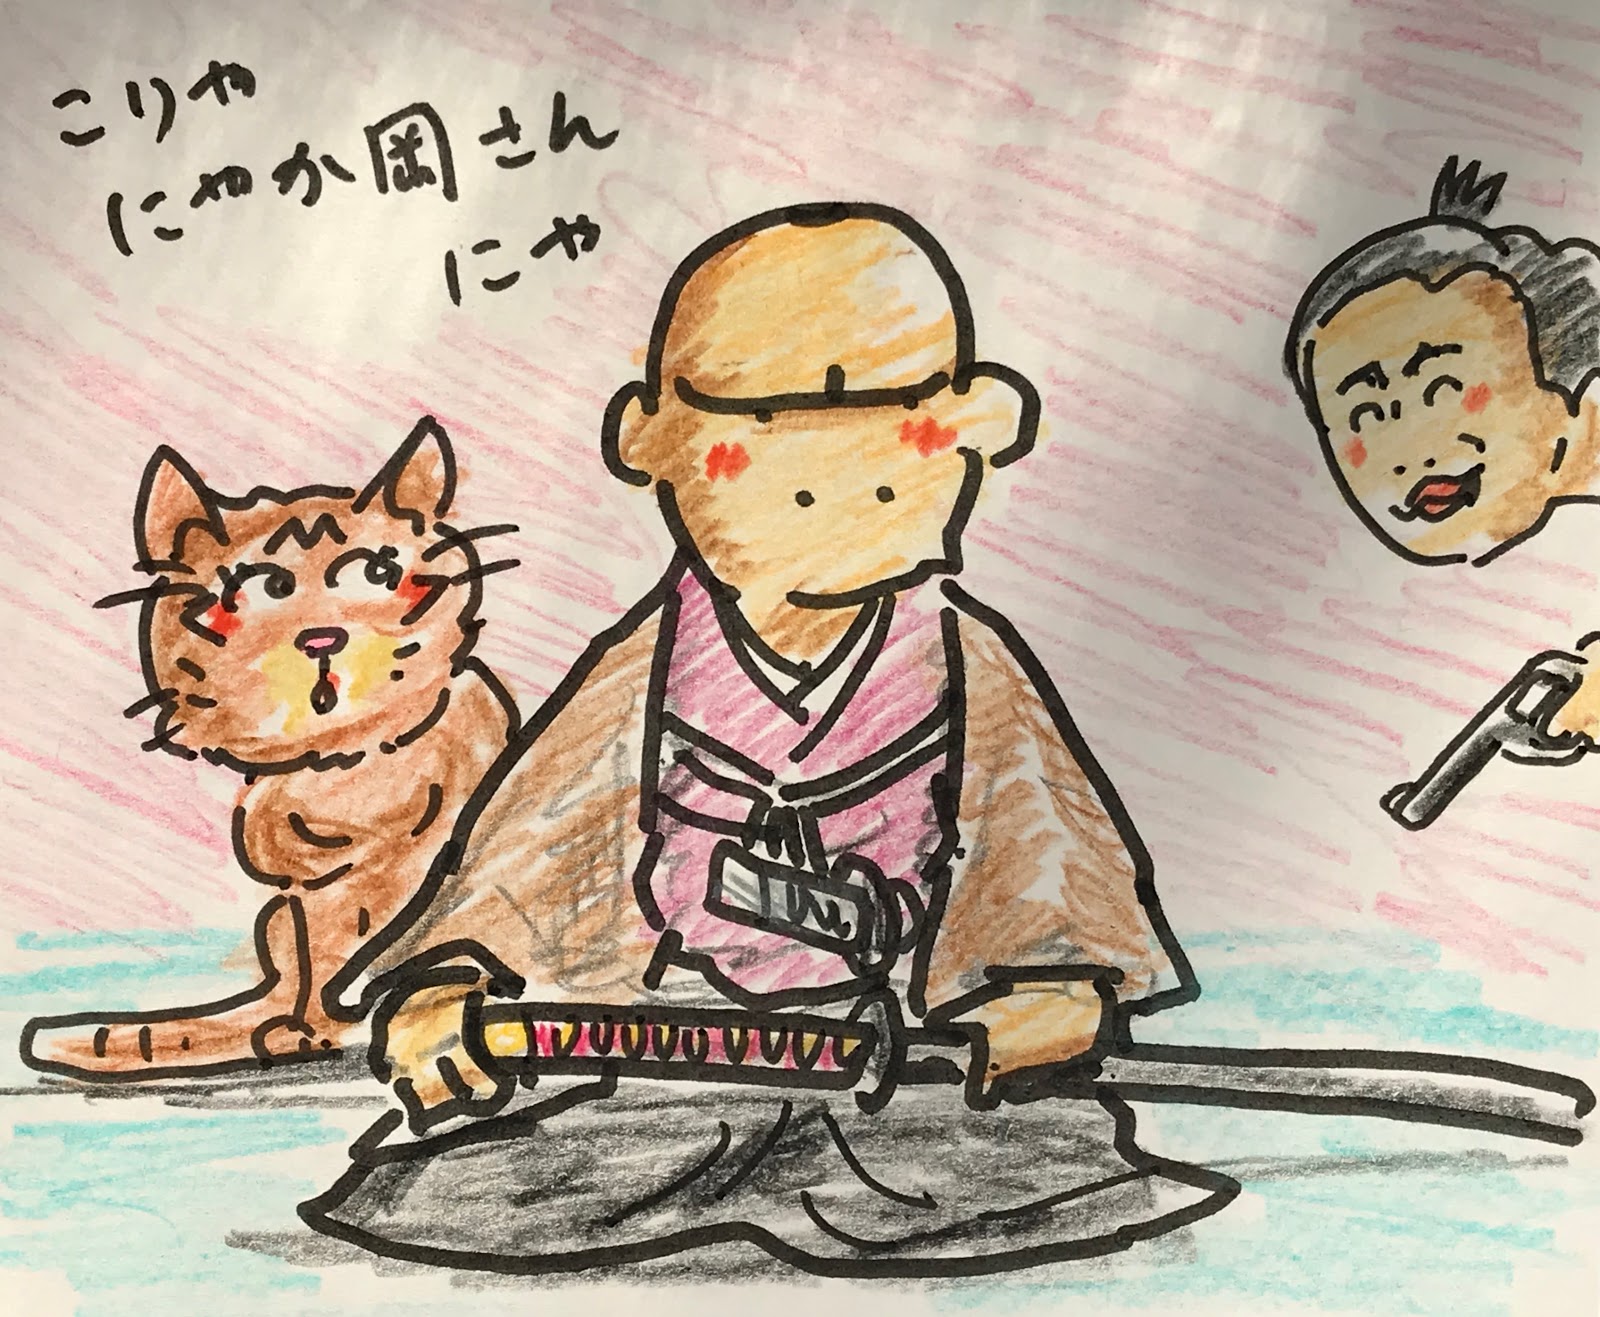 こりゃ
にゃか岡さん
にゃ